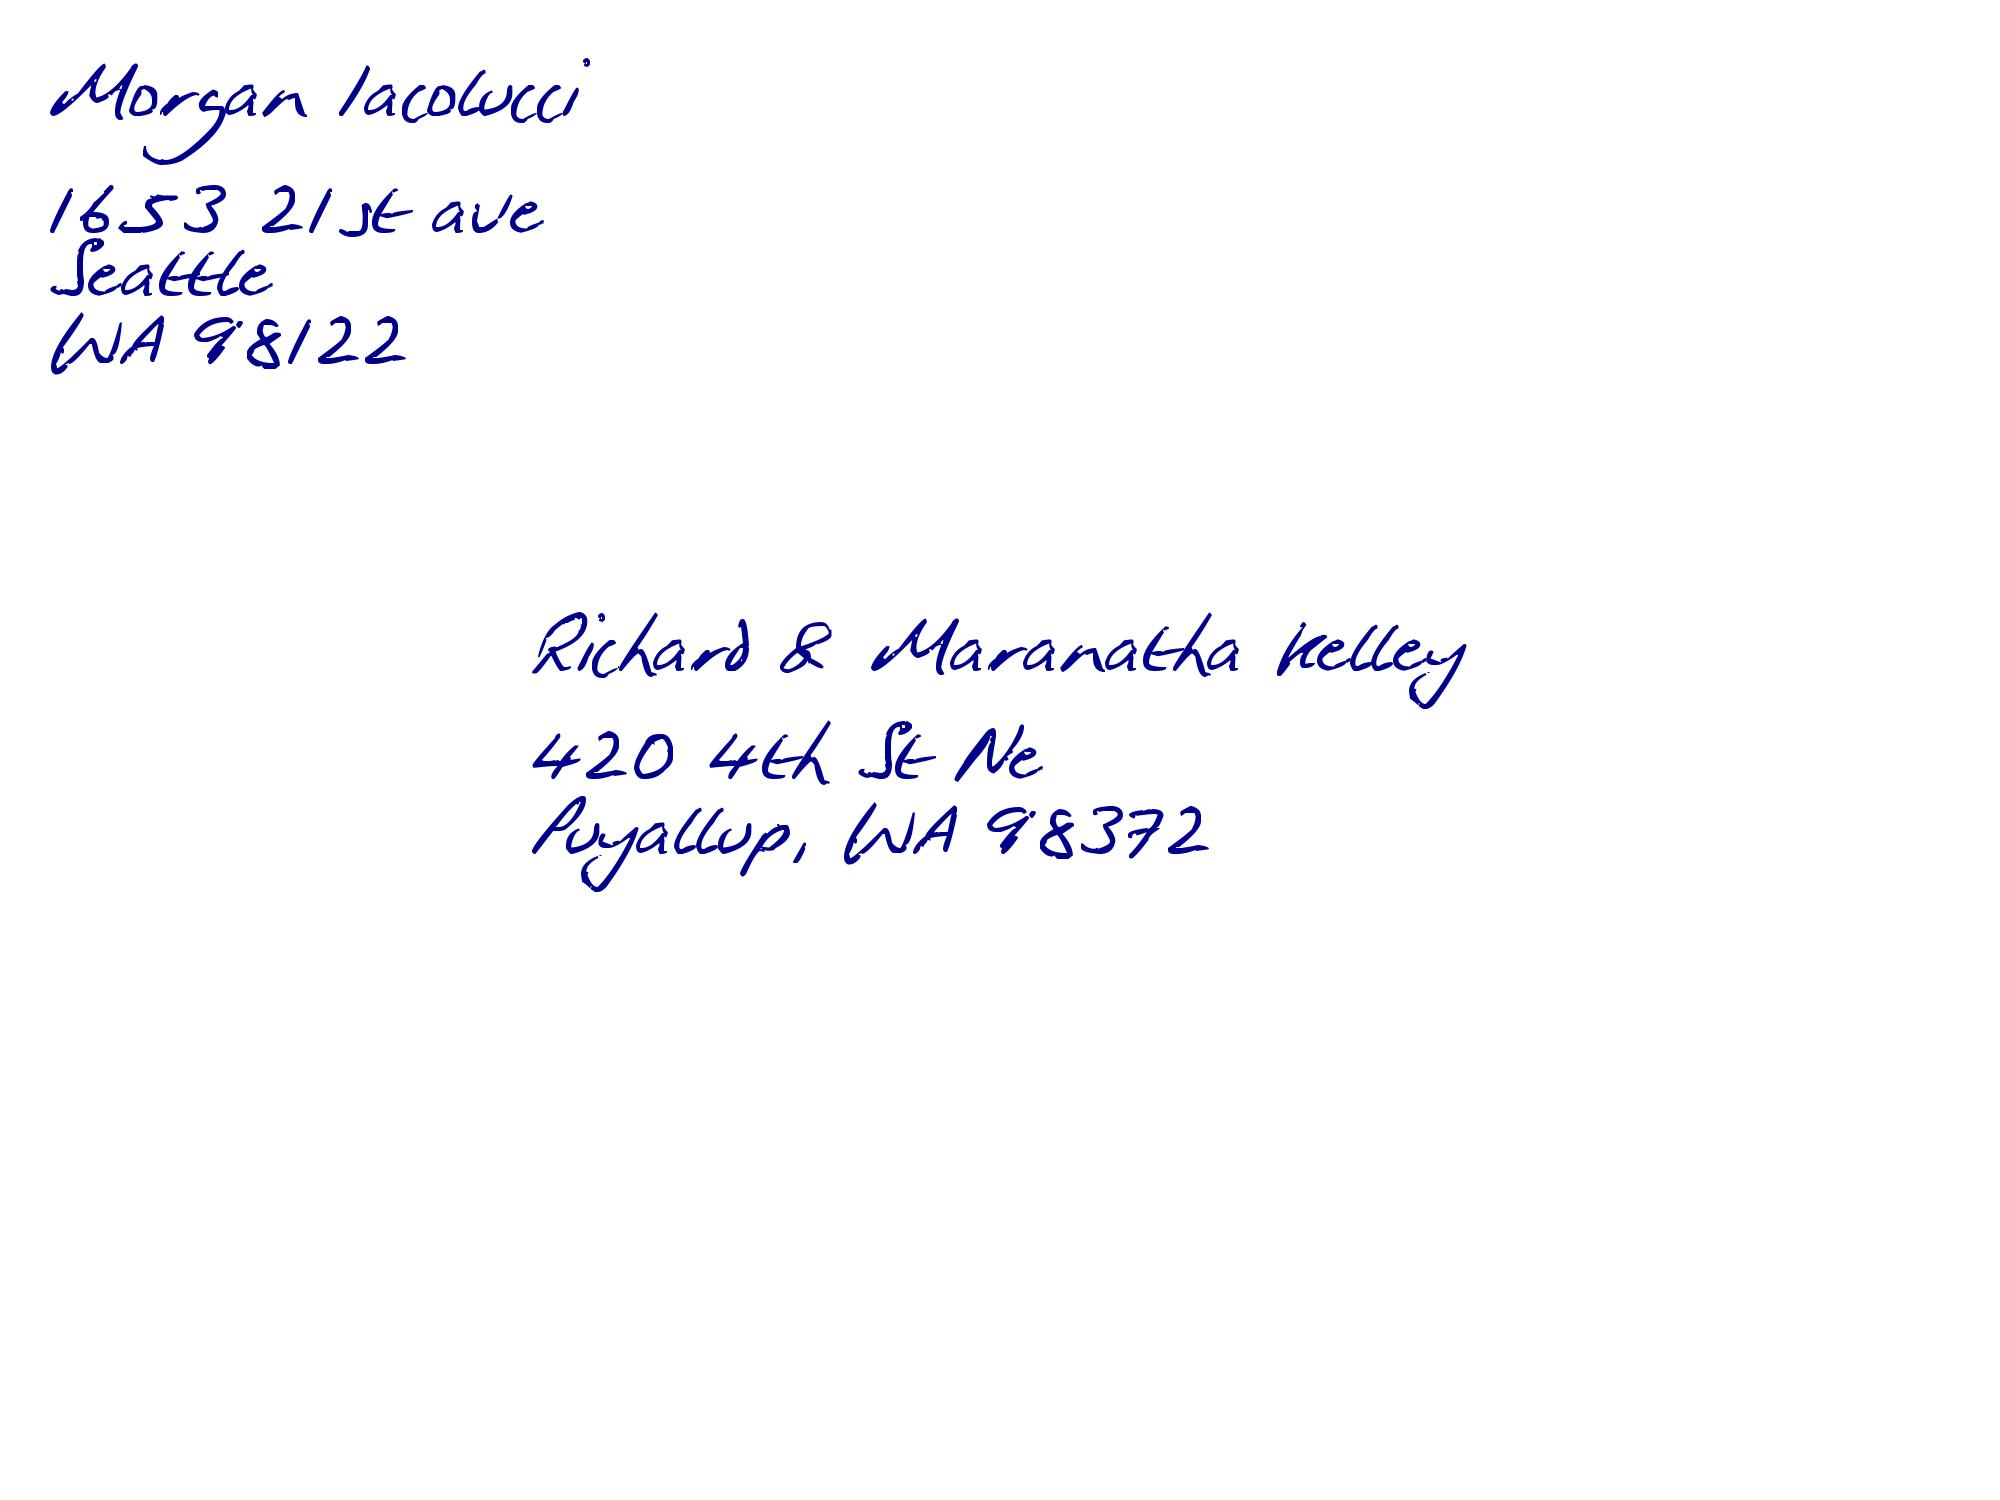 Morgan Iacolucci
1653 21st ave
Seattle
WA 98122
Richard & Maranatha Kelley
420 4th St Ne
Puyallup, WA 98372